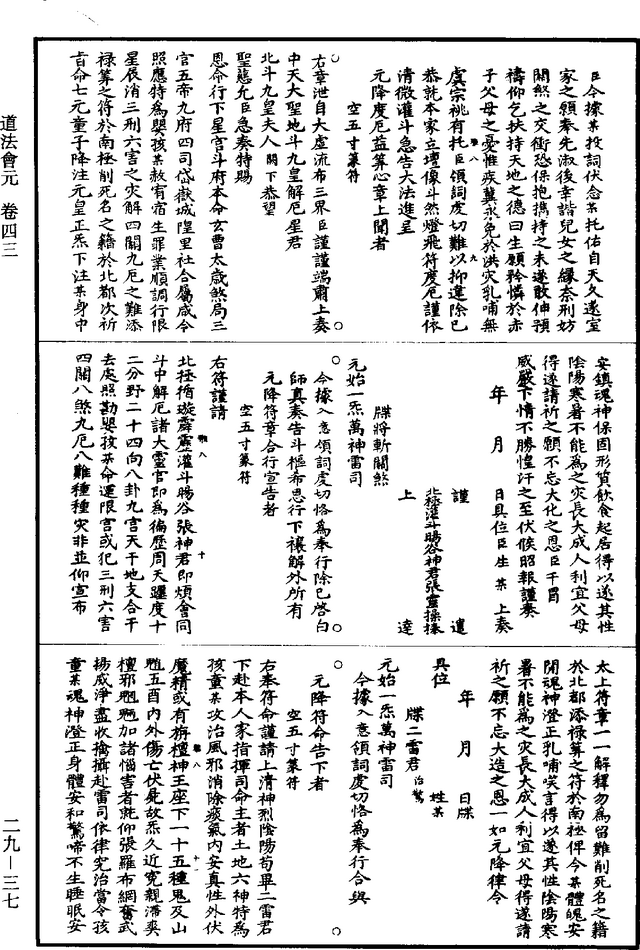 臣今據某投詞伏念某托佑自天久遂室
家之願奉先淑後幸諧兒女之緣柰刑妨
關煞之交衝恐保抱攜持之未遂敢伸預
禱仰乞扶持天地之德曰生願矜憐於赤
子父母之憂惟疾冀永免於洪灾乳哺無
虞宗祧有托臣領詞虔切難以抑違除已
恭就本家立壇像斗然燈飛符度厄謹依
清微灌斗急告大法進呈
元降度厄益算心章上聞者
空五寸篆符
右章泄自大虛流布三界臣謹謹端肅上奏
中天大聖北斗九皇解厄星君
北斗九皇夫人 闕下恭望
聖慈允臣急奏特賜
恩命行下星宮斗府本命玄曹太歲煞局三
官五帝九府四司岱嶽城隍里社合屬咸令
照應特為嬰孩某赦宥宿生罪業順調行限
星辰消三刑六害之灾解四關九厄之難添
祿筭之符於南極削死名之籍於北都次祈
告命七元童子降注元皇正炁下注某身中
安鎮魂神保固形質飲食起居得以遂其性
陰陽寒暑不能為之灾長大成人利宜父母
得遂請祈之願不忘大化之恩臣干冒
威嚴下情不勝惶汗之至伏候昭報謹奏
年 月 日具位臣姓某上奏
謹遣
北極灌斗暘谷神君張靈操捧
上達
牒將斬關煞
元始一炁萬神雷司
今據入意領詞虔切恪為奉行除已啓白
師真奏告斗樞希恩行下禳解外所有
元降符章合行宣告者
空五寸篆符
右符謹請
北極循璇霹靂灌斗暘谷張神君即煩會同
斗中解厄諸大靈官即為徧歷周天躔度十
二分野二十四向八卦九宮天干地支合干
去處照勘嬰孩某命運限宮或犯三刑六害
四關八煞九厄八難種種灾非並仰宣布
太上符章一一解釋勿為留難削死名之籍
於北都添祿筭之符於南極俾令某體魄安
閒魂神澄正乳哺咲言得以遂其性陰陽寒
暑不能為之灾長大成人利宜父母得遂請
祈之願不忘大造之恩一如元降律令
年 月 日牒
具位 姓某
牒二雷君治驚
元始一炁萬神雷司
今據入意領詞虔切恪為奉行合與
元降符命告下者
空五寸篆符
右奉符命謹請上清神烈陰陽苟畢二雷君
下赴本人家指揮司命主者土地六神特為
孩童某攻治風邪消除痰氣內安真性外伏
魔精或有旃檀神王座下一十五種鬼及山
魈五酉內外傷亡伏屍故炁久近寃親滯爽
檀邪魍魎加諸惱害者就仰張羅布網奮武
揚威淨盡收擒攝赴雷司依律究治當令孩
童某魂神澄正身體安和驚啼不生睡眠安
道法會元 卷四三
二九—三七